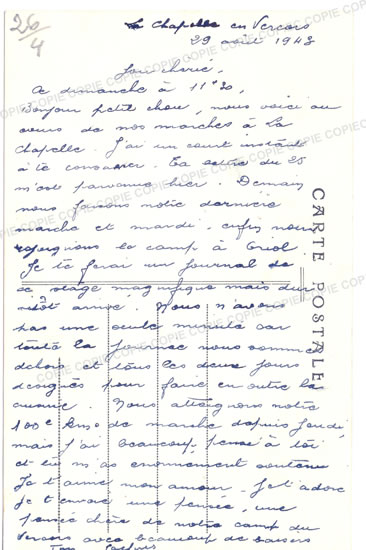 26/4
La Chapelle en Vercors
29 août 1943
Jour chérie,
Ce dimanche à 11h30,
Bonjour petit chou, nous voici au
cours de nos marches à La
Chapelle. J'ai un court instant
à te consacrer. Ta lettre du 25
m'est parvenue hier. Demain
nous faisons notre dernière
marche et mardi enfin nous
rejoignons le camp à
Je te ferai un journal de
ce stage magnifique mais dur
Nous n'avons
pas une seule minute car
toute la journée nous sommes
dehors et tous les deux jours
désignés pour faire en outre la
Nous atteignons notre
100e kms de marche depuis jeudi,
mais j'ai beaucoup pensé à toi
et tu m'as énormément soutenu
Je t'aime mon amour. Je t'adore
Je t'envoie une pensée, une
pensée chère de notre camp du
Vercors avec beaucoup de baisers
Ton
CARTE POSTALE
COPIE COPIE COPIE COPIE COPIE